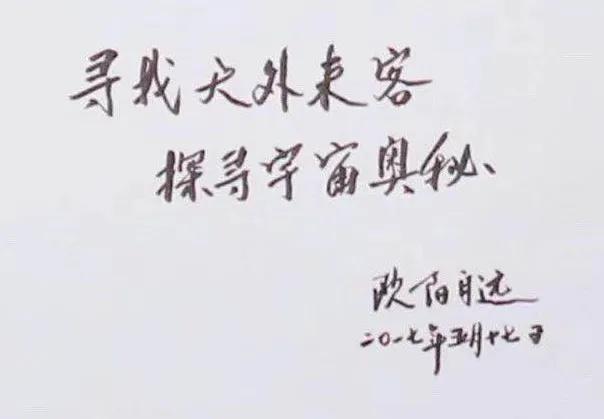 寻找天外来客
探寻宇宙奥秘、
欧阳自远
二〇一七年五月十七日